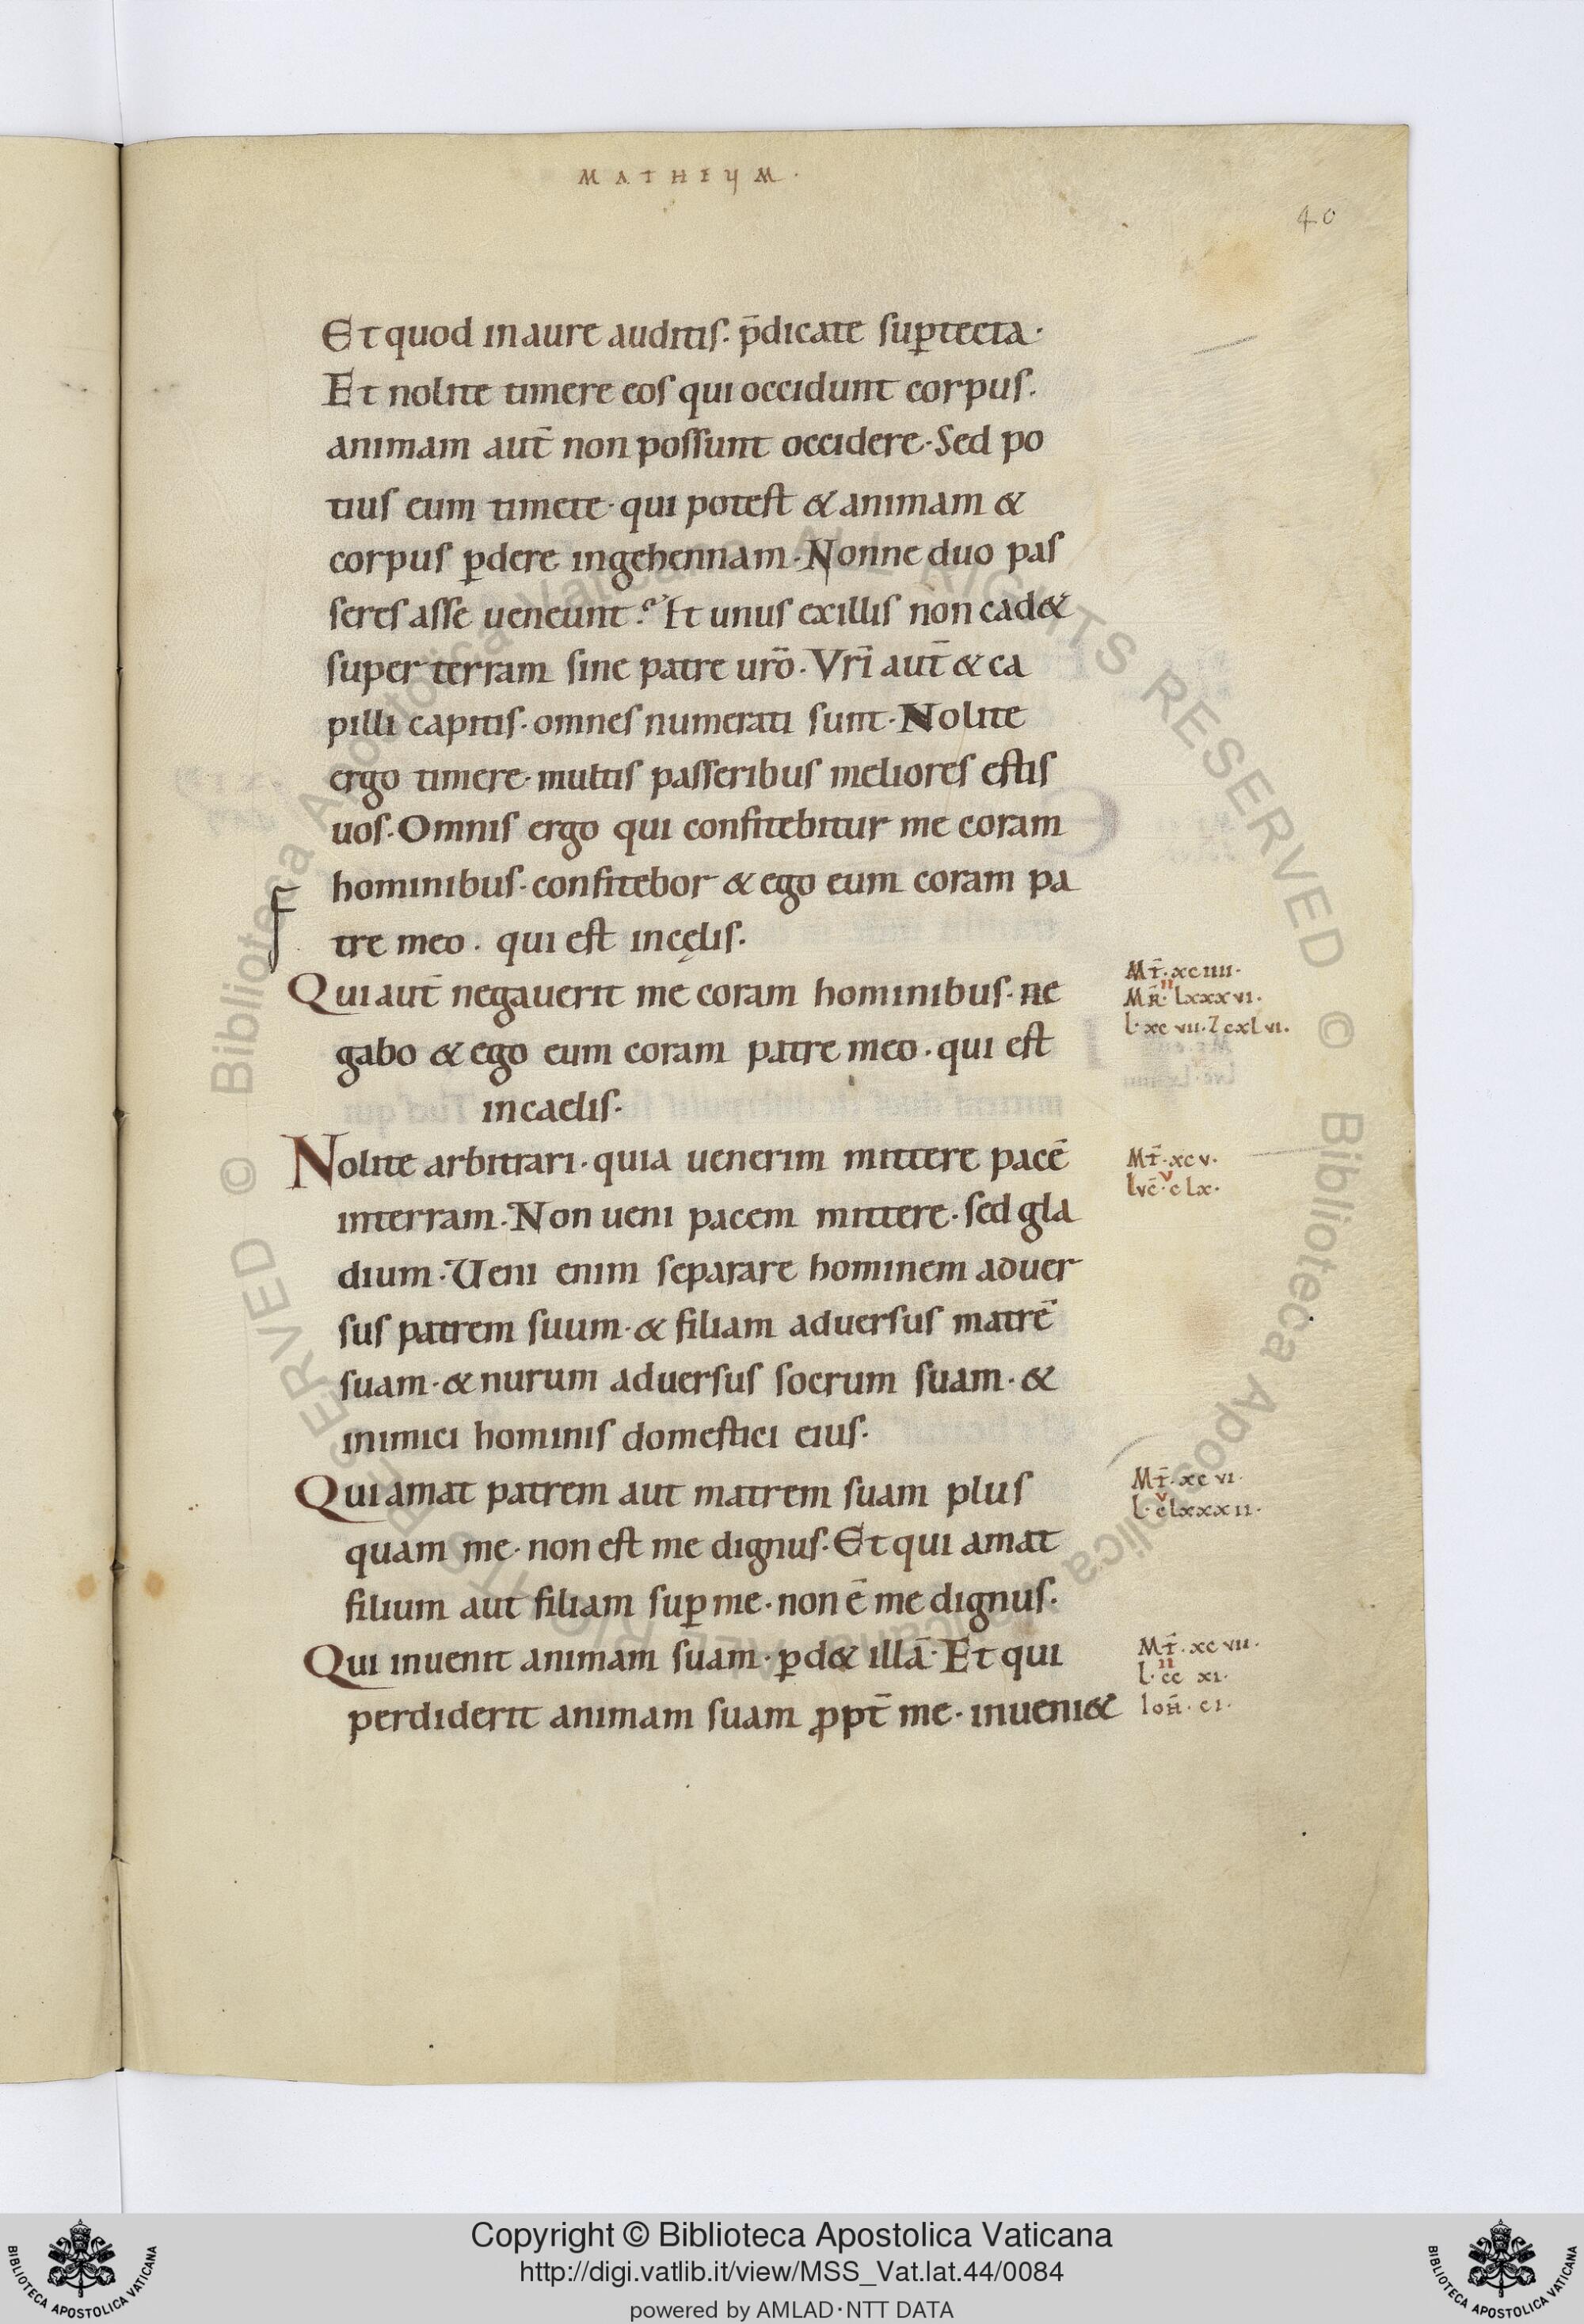 MATHEUM·
40
Et quod in aure auditis· p̄dicate sup̱ tecta·
Et nolite timere eos qui occidunt corpus·
animam aut̄ non possunt occidere· Sed po
tius eum timete· qui potest & animam &
corpus p̱dere in gehennam· Nonne duo pas
seres asse ueneunt? Et unus ex illis non cad&
super terram sine patre ur̄o· Vr̄i aut̄ & ca
pilli capitis· omnes numerati sunt· Nolite
ergo timere· multis passeribus meliores estis
uos· Omnis ergo qui confitebitur me coram
hominibus· confitebor & ego eum coram pa
tre meo· qui est in cęlis·
Qui aut̄ negauerit me coram hominibus· ne
gabo & ego eum coram patre meo· qui est
in caelis·
Mt̄· xciiii·
II
MR̄· lxxxvi·
l· xcvii· 7 cxlvi·
Nolite arbitrari· quia uenerim mittere pacē
in terram· Non ueni pacem mittere· sed gla
dium· Ueni enim separare hominem aduer
sus patrem suum· & filiam aduersus matrē
suam· & nurum aduersus socrum suam· &
inimici hominis domestici eius·
Mt̄· xcv·
v
lvc̄· clx·
Qui amat patrem aut matrem suam plus
quam me· non est me dignus· Et qui amat
filium aut filiam sup̱ me· non ē me dignus·
Mt̄· xcvi·
v
l· clxxxii·
Qui inuenit animam suam· p̱d& illā· Et qui
perdiderit animam suam ꝓpt̄ me· inueni&
Mt̄· xcvii·
II
l· ccxi·
Ioh̄· ci·
© Biblioteca Apostolica Vaticana ALL RIGHTS RESERVED © Biblioteca Apostolica Vaticana ALL RIGHTS RESERVED
Copyright © Biblioteca Apostolica Vaticana
http://digi.vatlib.it/view/MSS_Vat.lat.44/0084
powered by AMLAD·NTT DATA
BIBLIOTECA APOSTOLICA VATICANA
BIBLIOTECA APOSTOLICA VATICANA